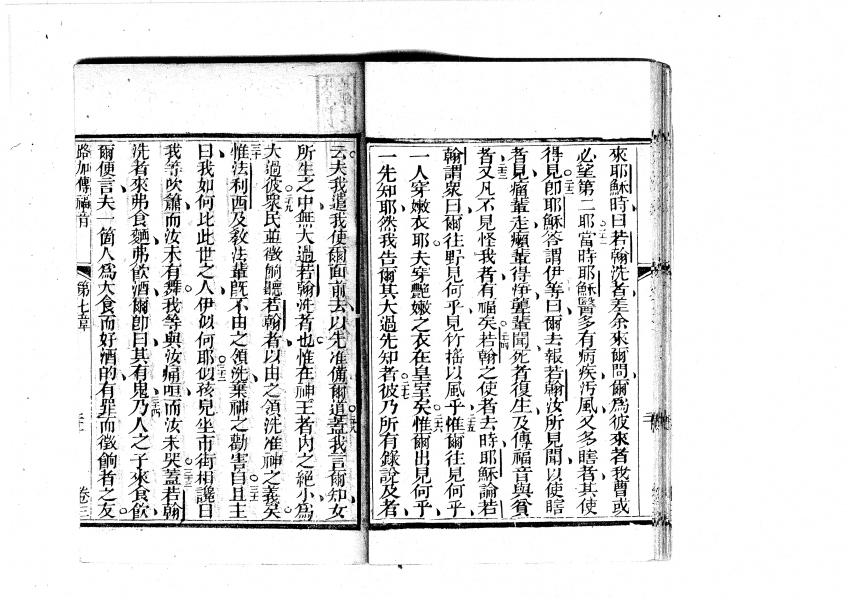 來耶穌時曰若翰洗者差余來爾問爾為彼來者我曹或
必望第二耶當時耶穌醫多有病疾污風又多瞎者其使
得見卽耶穌答謂伊等曰爾去報若翰汝所見聞以使瞎
者見瘸輩走癩輩得淨聾輩聞死者復生及傳福音與貧
者又凡不見怪我者有福矣若翰之使者去時耶穌論若
翰謂衆曰爾往野見何乎見竹搖以風乎惟爾往見何乎
一人穿嫩衣耶夫穿艷嫩之衣在皇室矣惟爾出見何乎
一先知耶然我告爾其大過先知者彼乃所有錄說及者
云夫我遣我使爾面前去以先准備爾道蓋我言爾知女
所生之中無大過若翰洗者也惟在神王者內之絕小為
大過彼衆民並徵餉聽若翰者以由之領洗准神之義矣
惟法利西及敎法輩旣不由之領洗棄神之勸害自且主
曰我如何比此世之人伊似何耶似孩兒坐市街相譏曰
我等吹簫而汝未有舞我等與汝痛咺而汝未哭蓋若翰
洗者來弗食麵弗飲酒爾卽曰其有鬼乃人之子來食飲
爾便言夫一箇人為大食而好酒的有罪而徵餉者之友
路加傳福音 第七章 卷三